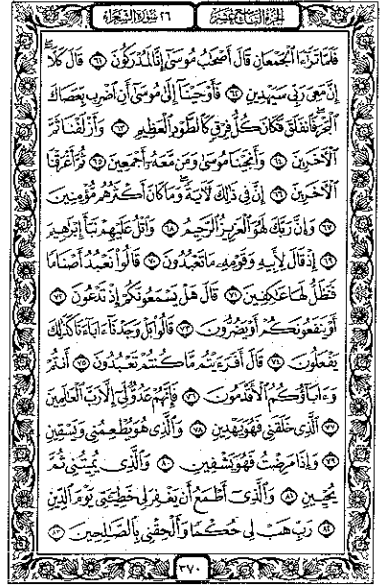 الجزء التاسع عشر ٢٦ سورة الشعراء
فَلَمَّا تَرَٰٓءَا ٱلْجَمْعَانِ قَالَ أَصْحَٰبُ مُوسَىٰٓ إِنَّا لَمُدْرَكُونَ ٦١ قَالَ كَلَّآ
إِنَّ مَعِىَ رَبِّى سَيَهْدِينِ ٦٢ فَأَوْحَيْنَآ إِلَىٰ مُوسَىٰٓ أَنِ ٱضْرِب بِّعَصَاكَ
ٱلْبَحْرَ فَٱنفَلَقَ فَكَانَ كُلُّ فِرْقٍ كَٱلطَّوْدِ ٱلْعَظِيمِ ٦٣ وَأَزْلَفْنَا ثَمَّ
ٱلْءَاخَرِينَ ٦٤ وَأَنجَيْنَا مُوسَىٰ وَمَن مَّعَهُۥٓ أَجْمَعِينَ ٦٥ ثُمَّ أَغْرَقْنَا
ٱلْءَاخَرِينَ ٦٦ إِنَّ فِى ذَٰلِكَ لَءَايَةً وَمَا كَانَ أَكْثَرُهُم مُّؤْمِنِينَ
٦٧ وَإِنَّ رَبَّكَ لَهُوَ ٱلْعَزِيزُ ٱلرَّحِيمُ ٦٨ وَٱتْلُ عَلَيْهِمْ نَبَأَ إِبْرَٰهِيمَ
٦٩ إِذْ قَالَ لِأَبِيهِ وَقَوْمِهِۦ مَا تَعْبُدُونَ ٧٠ قَالُوا۟ نَعْبُدُ أَصْنَامًا
فَنَظَلُّ لَهَا عَٰكِفِينَ ٧١ قَالَ هَلْ يَسْمَعُونَكُمْ إِذْ تَدْعُونَ ٧٢
أَوْ يَنفَعُونَكُمْ أَوْ يَضُرُّونَ ٧٣ قَالُوا۟ بَلْ وَجَدْنَآ ءَابَآءَنَا كَذَٰلِكَ
يَفْعَلُونَ ٧٤ قَالَ أَفَرَءَيْتُم مَّا كُنتُمْ تَعْبُدُونَ ٧٥ أَنتُمْ
وَءَابَآؤُكُمُ ٱلْأَقْدَمُونَ ٧٦ فَإِنَّهُمْ عَدُوٌّ لِّىٓ إِلَّا رَبَّ ٱلْعَٰلَمِينَ
٧٧ ٱلَّذِى خَلَقَنِى فَهُوَ يَهْدِينِ ٧٨ وَٱلَّذِى هُوَ يُطْعِمُنِى وَيَسْقِينِ
٧٩ وَإِذَا مَرِضْتُ فَهُوَ يَشْفِينِ ٨٠ وَٱلَّذِى يُمِيتُنِى ثُمَّ
يُحْيِينِ ٨١ وَٱلَّذِىٓ أَطْمَعُ أَن يَغْفِرَ لِى خَطِيٓـَٔتِى يَوْمَ ٱلدِّينِ
٨٢ رَبِّ هَبْ لِى حُكْمًا وَأَلْحِقْنِى بِٱلصَّٰلِحِينَ ٨٣
٣٧٠